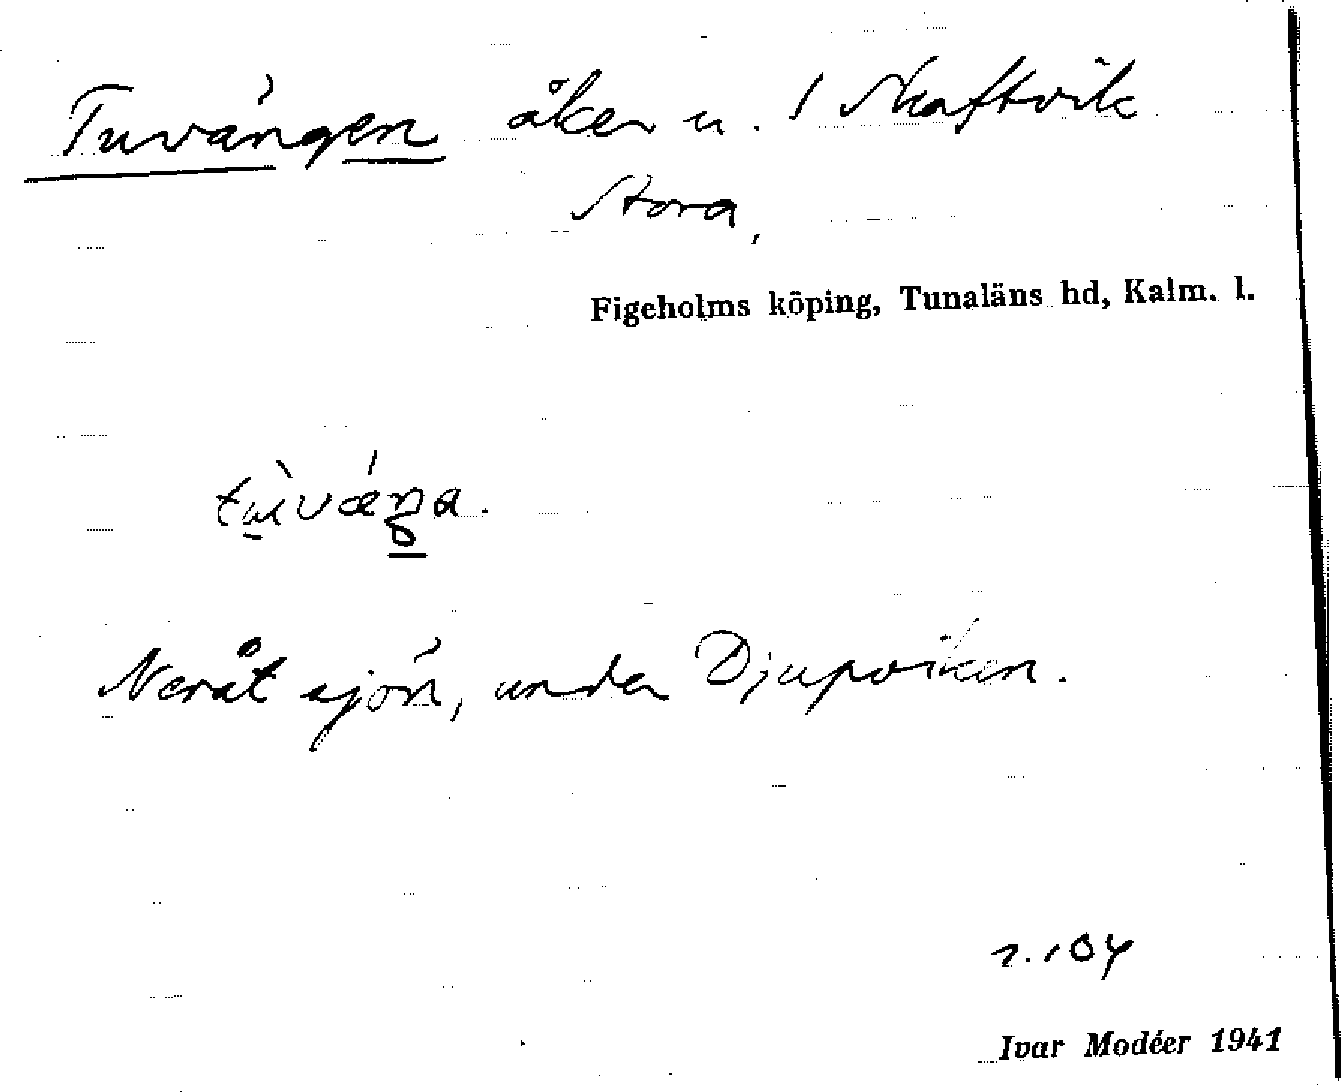 Tuvängen åker u. 1 Skaftvik
Stora,
Figeholms köping, Tunaläns hd, Kalm. l.
Neråt sjön, under Djupviken.
r. 104
Ivar Modéer 1941